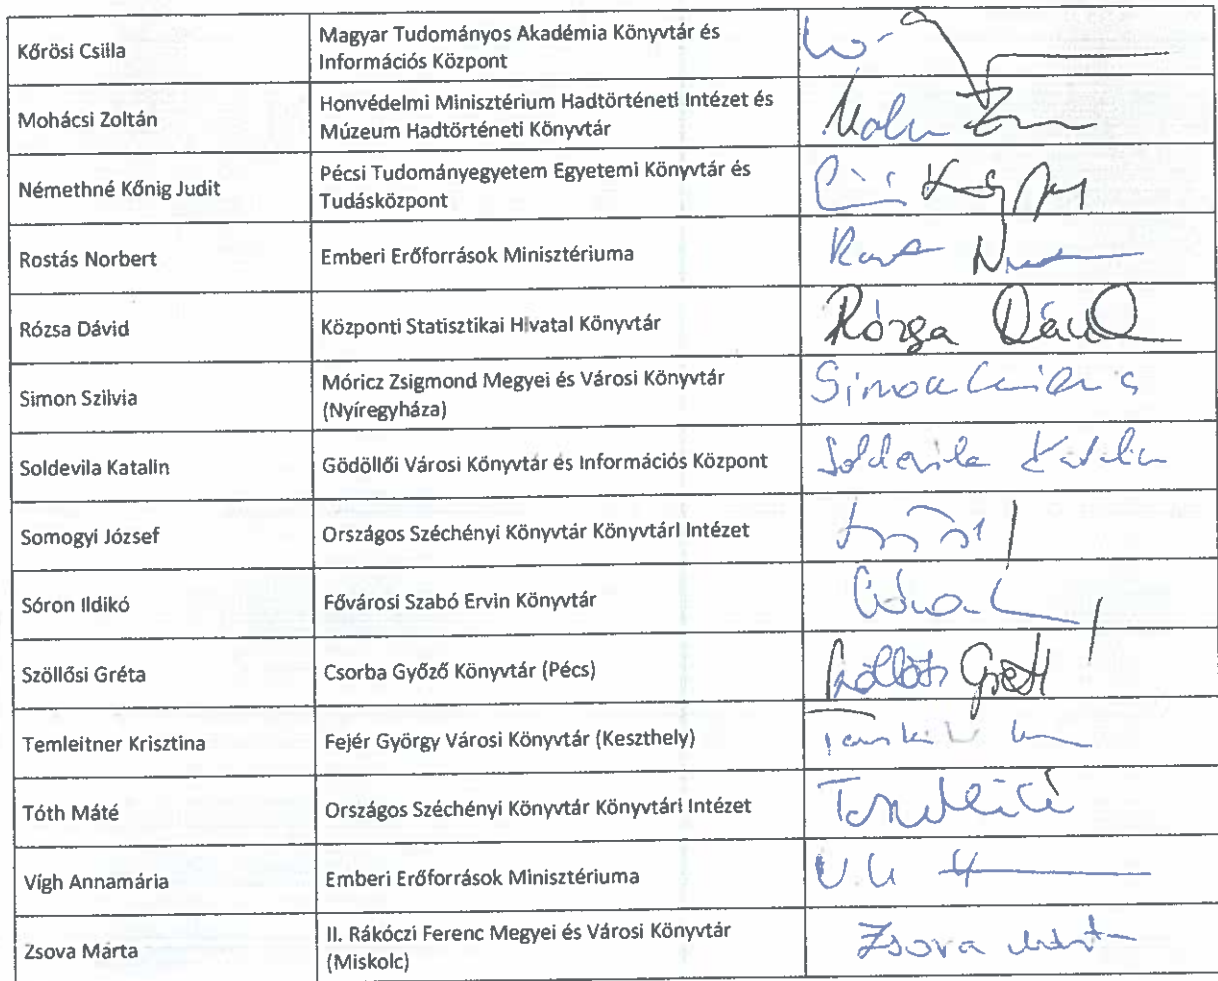 Kőrösi Csilla
Magyar Tudományos Akadémia Könyvtár és
Információs Központ
Mohácsi Zoltán
Honvédelmi Minisztérium Hadtörténeti Intézet és
Múzeum Hadtörténeti Könyvtár
Némethné Kőnig Judit
Pécsi Tudományegyetem Egyetemi Könyvtár és
Tudásközpont
Rostás Norbert
Emberi Erőforrások Minisztériuma
Rózsa Dávid
Központi Statisztikai Hivatal Könyvtár
Rózsa Dávid
Simon Szilvia
Móricz Zsigmond Megyei és Városi Könyvtár
(Nyíregyháza)
Simon
Soldevila Katalin
Gödöllői Városi Könyvtár és Információs Központ
Soldevila Katalin
Somogyi József
Országos Széchényi Könyvtár Könyvtári Intézet
Sóron Ildikó
Fővárosi Szabó Ervin Könyvtár
Szöllősi Gréta
Csorba Győző Könyvtár (Pécs)
Temleitner Krisztina
Fejér György Városi Könyvtár (Keszthely)
Tóth Máté
Országos Széchényi Könyvtár Könyvtári Intézet
Vígh Annamária
Emberi Erőforrások Minisztériuma
Zsova Márta
II. Rákóczi Ferenc Megyei és Városi Könyvtár
(Miskolc)
Zsova Márta